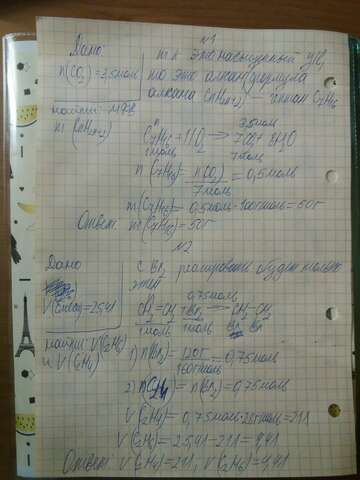 №1
Дано
n(CO2)=3,5моль
найти: МФВ
m(CnH2n+2)
т.к это насыщенный УВ,
то это алкан, формула
алкана CnH2n+2 - гептан C7H16
3,5моль
C7H16 + 11O2 → 7CO2 + 8H2O
1моль 7моль
n(C7H16) = n(CO2) / 7моль = 0,5моль
m(C7H16) = 0,5моль·100г/моль = 50г
Ответ: m(C7H16) = 50г
№2
Дано
V(смеси) = 25,4л
найти: V(C2H6)
и V(C2H4)
С Br2 реагировать будет только
этен
0,75моль
CH2=CH2 + Br2 → CH2-CH2
1моль 1моль Br Br
1) n(Br2) = 120г / 160г/моль = 0,75моль
2) n(C2H4) = n(Br2) = 0,75моль
V(C2H4) = 0,75моль·28г/моль = 21л
V(C2H6) = 25,4л - 21л = 4,4л
Ответ: V(C2H4) = 21л, V(C2H6) = 4,4л